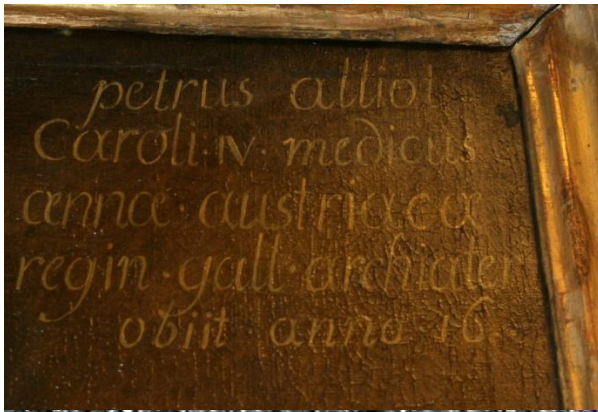 petrus alliot
Caroli · IV · medicus
annæ · austriacæ
regin · gall · archiater
obiit anno 16